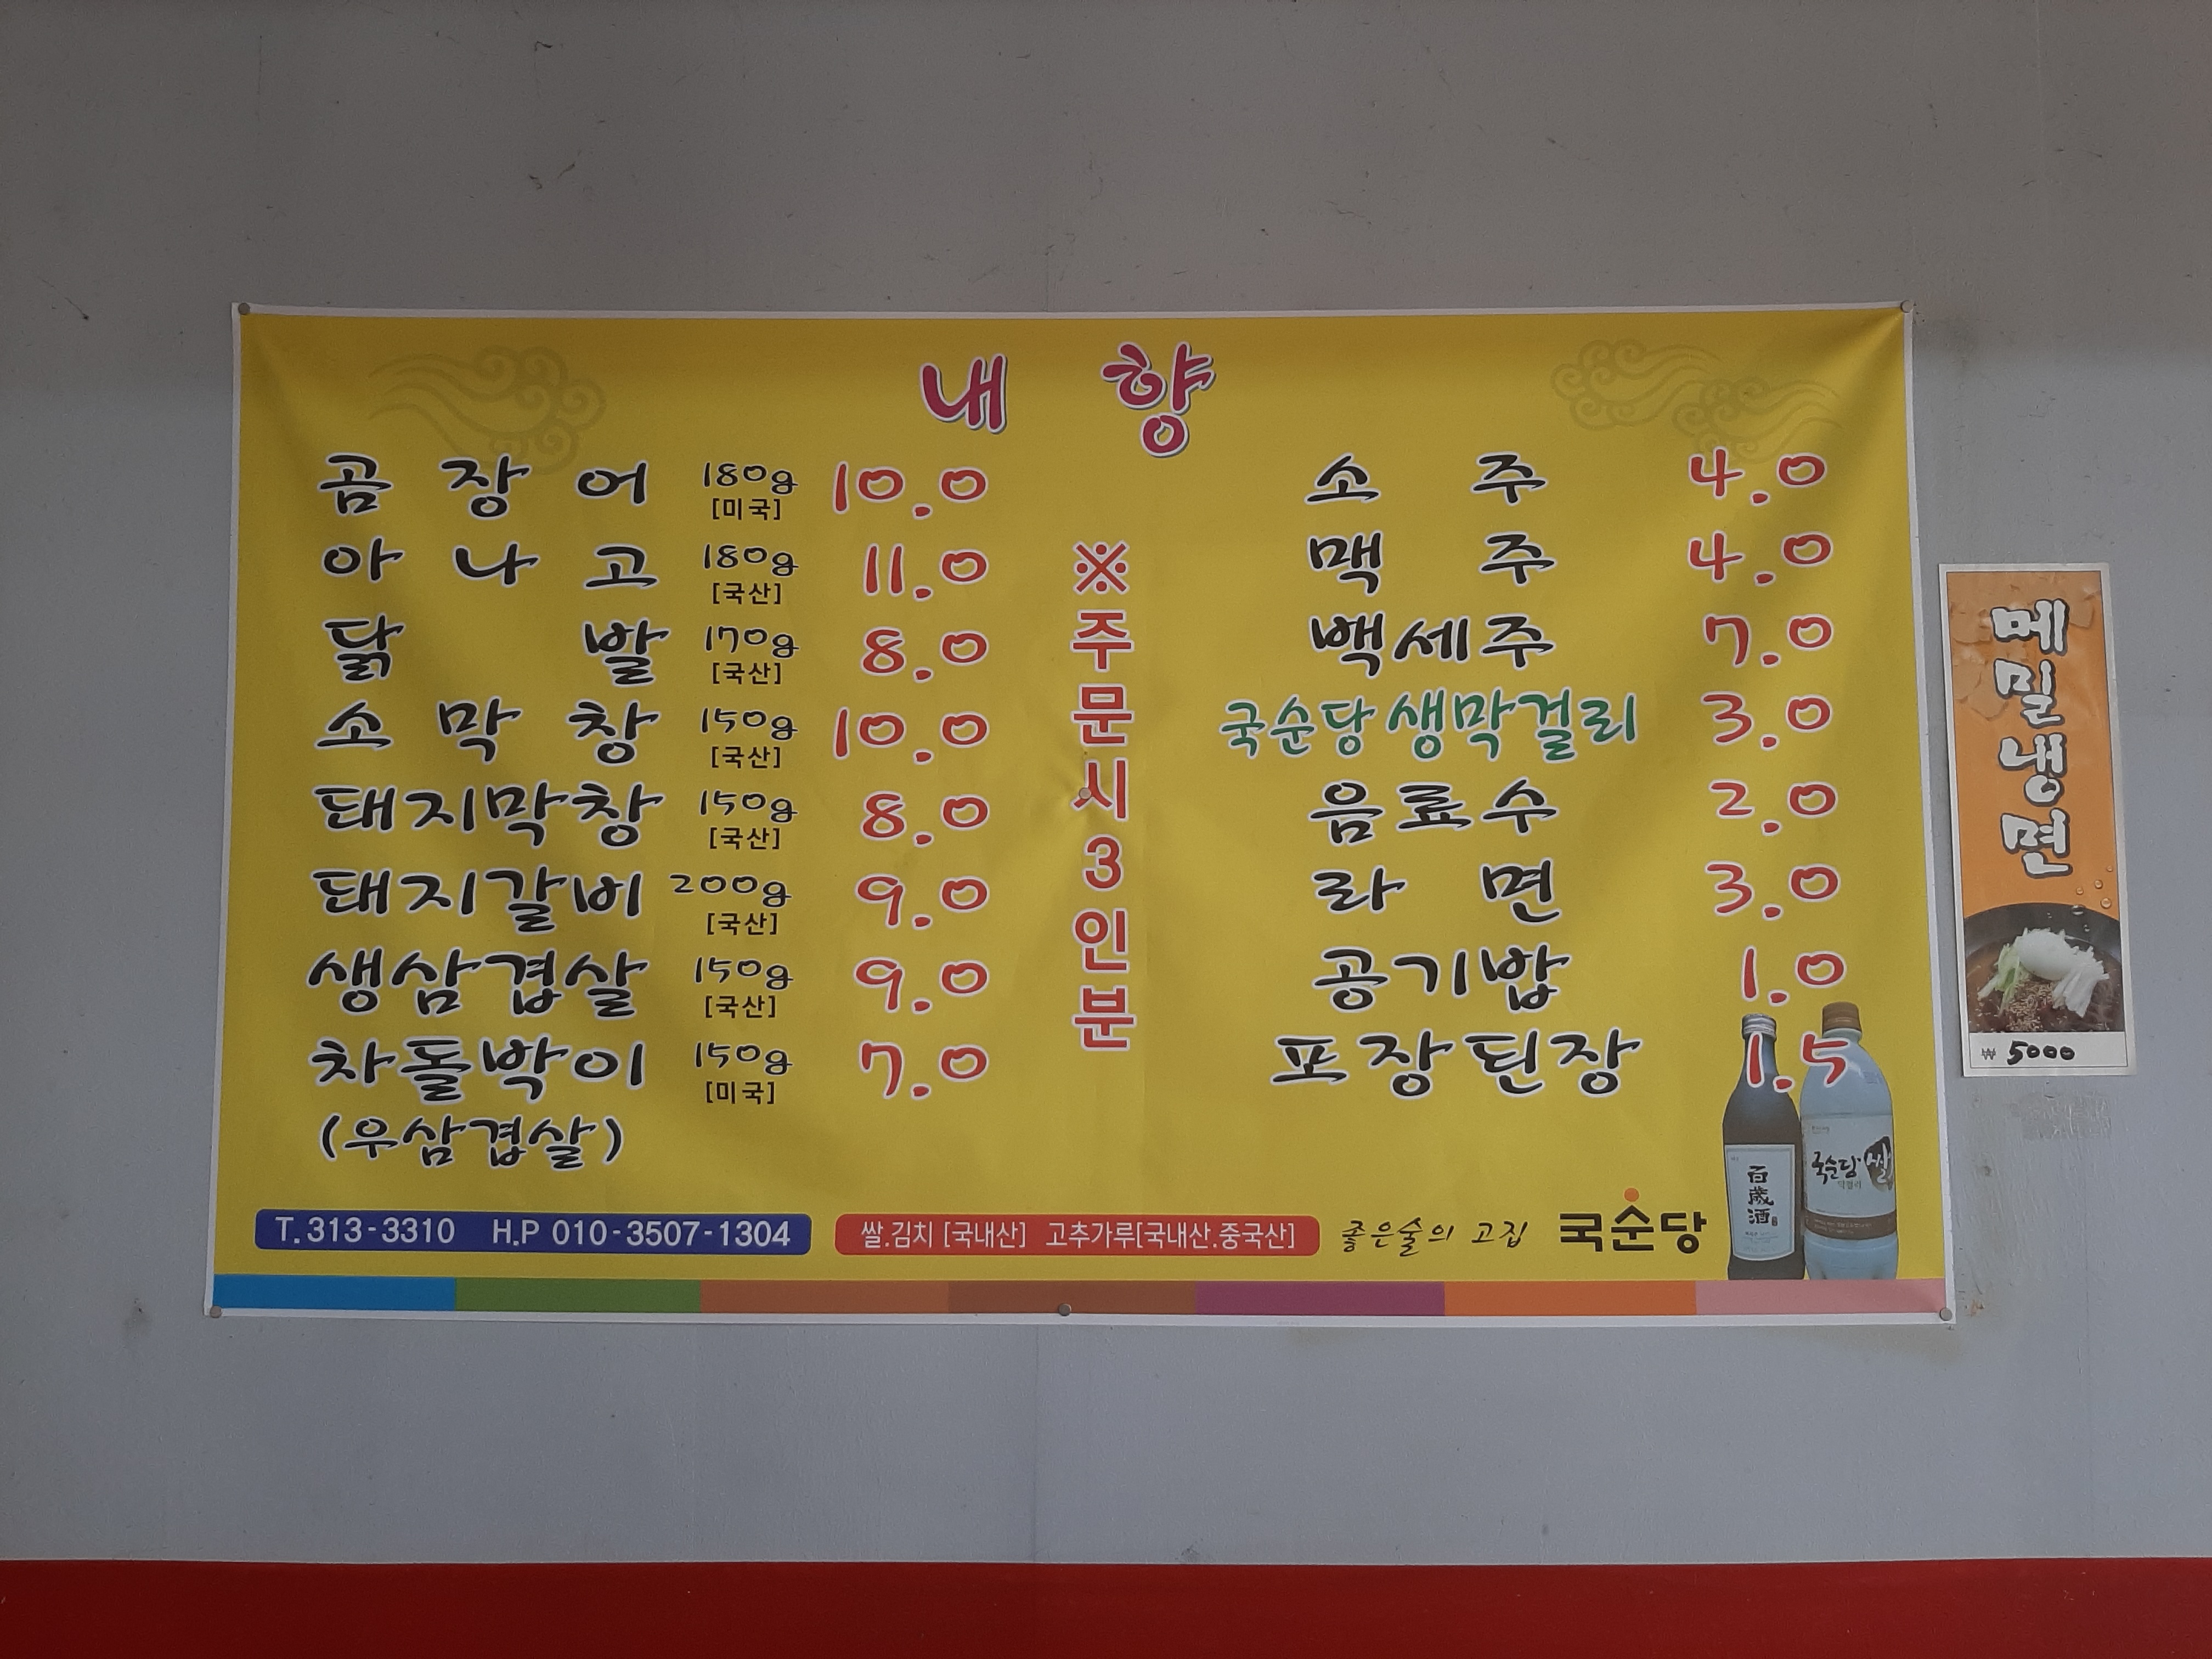 내 향
곰장어 180g [미국] 10.0
아나고 180g [국산] 11.0
닭발 170g [국산] 8.0
소막창 150g [국산] 10.0
돼지막창 150g [국산] 8.0
돼지갈비 200g [국산] 9.0
생삼겹살 150g [국산] 9.0
차돌박이 150g [미국] 7.0
(우삼겹살)
※주문시3인분
소주 4.0
맥주 4.0
백세주 7.0
국순당생막걸리 3.0
음료수 2.0
라면 3.0
공기밥 1.0
포장된장 1.5
T.313-3310 H.P 010-3507-1304
쌀.김치 [국내산] 고추가루[국내산.중국산]
좋은술의 고집 국순당
百歲酒
국순당 쌀
막걸리
메밀냉면
₩ 5000